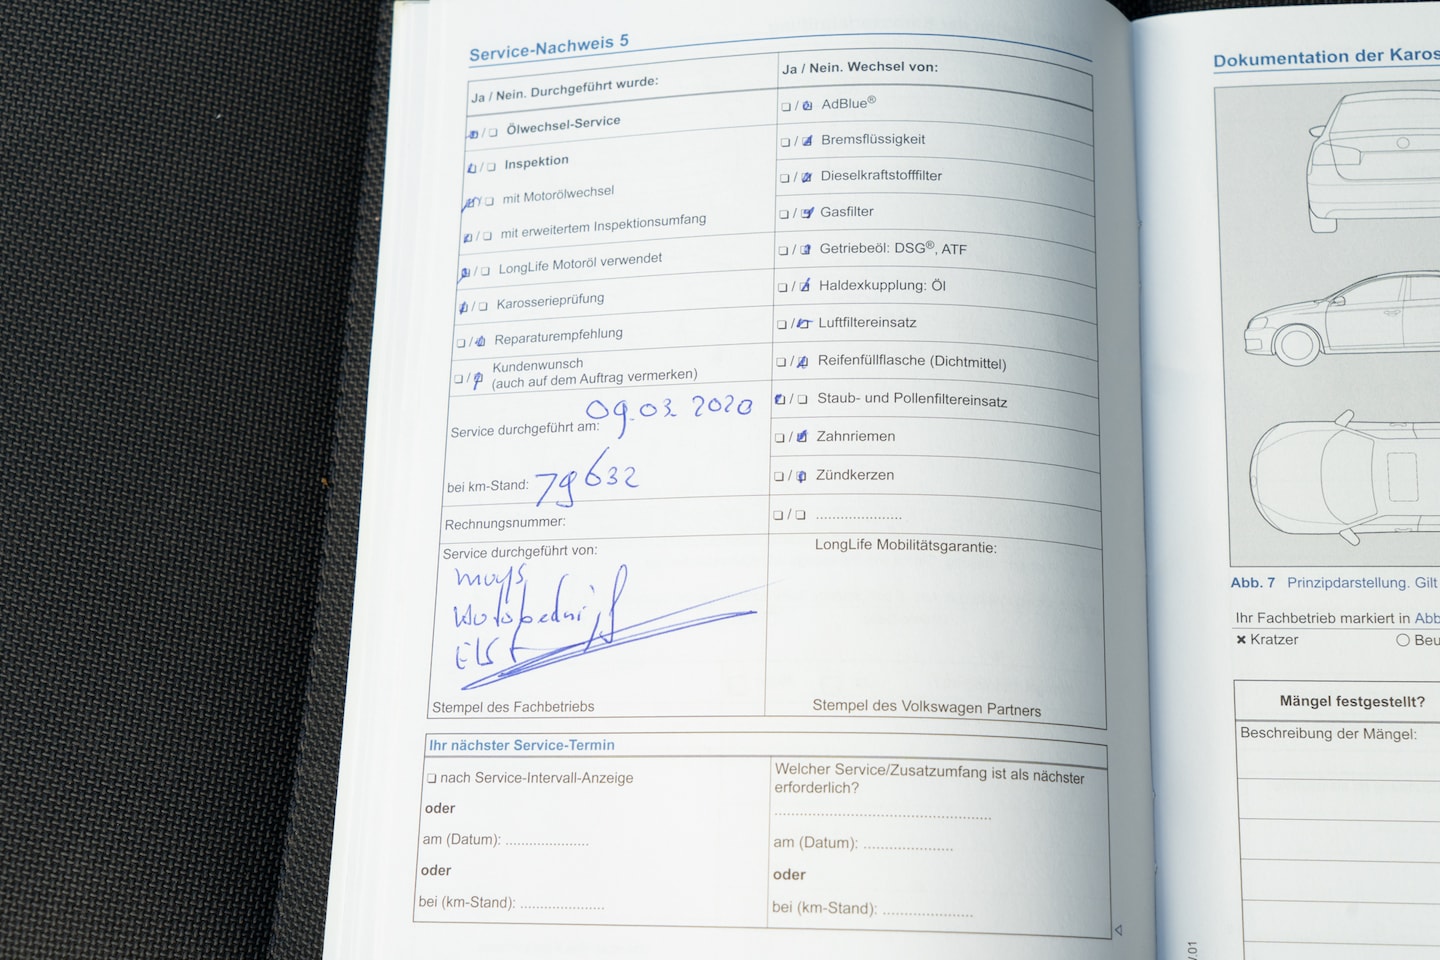 Service-Nachweis 5
Ja / Nein. Durchgeführt wurde:
☑ / ☐ Ölwechsel-Service
☑ / ☐ Inspektion
☑ / ☐ mit Motorölwechsel
☑ / ☐ mit erweitertem Inspektionsumfang
☑ / ☐ LongLife Motoröl verwendet
☑ / ☐ Karosserieprüfung
☐ / ☑ Reparaturempfehlung
☐ / ☑ Kundenwunsch
(auch auf dem Auftrag vermerken)
Service durchgeführt am: 09.03.2020
bei km-Stand: 79632
Rechnungsnummer:
Service durchgeführt von:
Elst
Stempel des Fachbetriebs
Ja / Nein. Wechsel von:
☐ / ☑ AdBlue®
☐ / ☑ Bremsflüssigkeit
☐ / ☑ Dieselkraftstofffilter
☐ / ☑ Gasfilter
☐ / ☑ Getriebeöl: DSG®, ATF
☐ / ☑ Haldexkupplung: Öl
☐ / ☑ Luftfiltereinsatz
☐ / ☑ Reifenfüllflasche (Dichtmittel)
☑ / ☐ Staub- und Pollenfiltereinsatz
☐ / ☑ Zahnriemen
☐ / ☑ Zündkerzen
☐ / ☐ .....................
LongLife Mobilitätsgarantie:
Stempel des Volkswagen Partners
Ihr nächster Service-Termin
☐ nach Service-Intervall-Anzeige
oder
am (Datum): ....................
oder
bei (km-Stand): ....................
Welcher Service/Zusatzumfang ist als nächster
erforderlich?
....................................................
am (Datum): ......................
oder
bei (km-Stand): ......................
Dokumentation der Karos
Abb. 7 Prinzipdarstellung. Gilt
Ihr Fachbetrieb markiert in Abb
✖ Kratzer
○ Beu
Mängel festgestellt?
Beschreibung der Mängel: